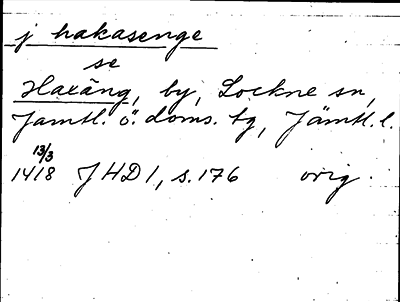 j hakasenge
se
Haxäng, by, Lockne sn,
Jämtl. ö. doms. tg, Jämtl. l.
13/3
1418 JHD 1, s. 176 orig.